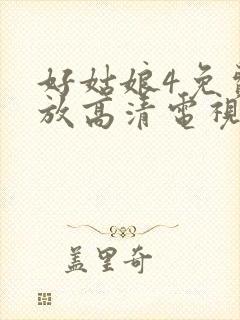 好姑娘4免
放高清電視
盖里奇